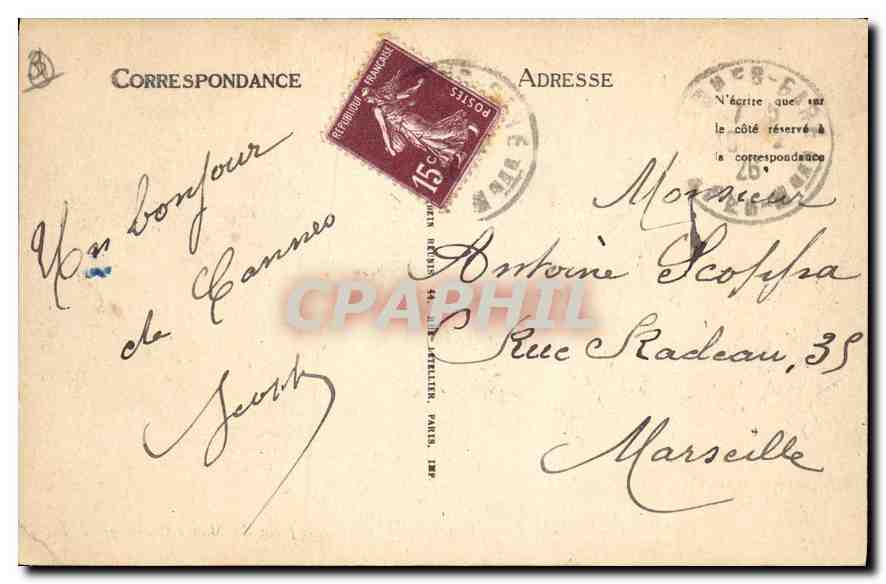 CORRESPONDANCE
ADRESSE
N'écrire que sur
le côté réservé à
la correspondance
REPUBLIQUE FRANÇAISE
POSTES
15c
Un bonjour
de Cannes
Scopp
Monsieur
Antoine Scoppa
Rue Radeau, 35
Marseille
REUNIS 44, RUE LETELLIER, PARIS, IMP
CPAPHIL